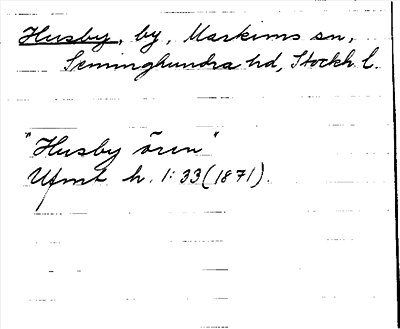 Husby, by, Markims sn,
Seminghundra hd, Stockh. l.
"Husby ören"
Ufmt h. 1:33 (1871).